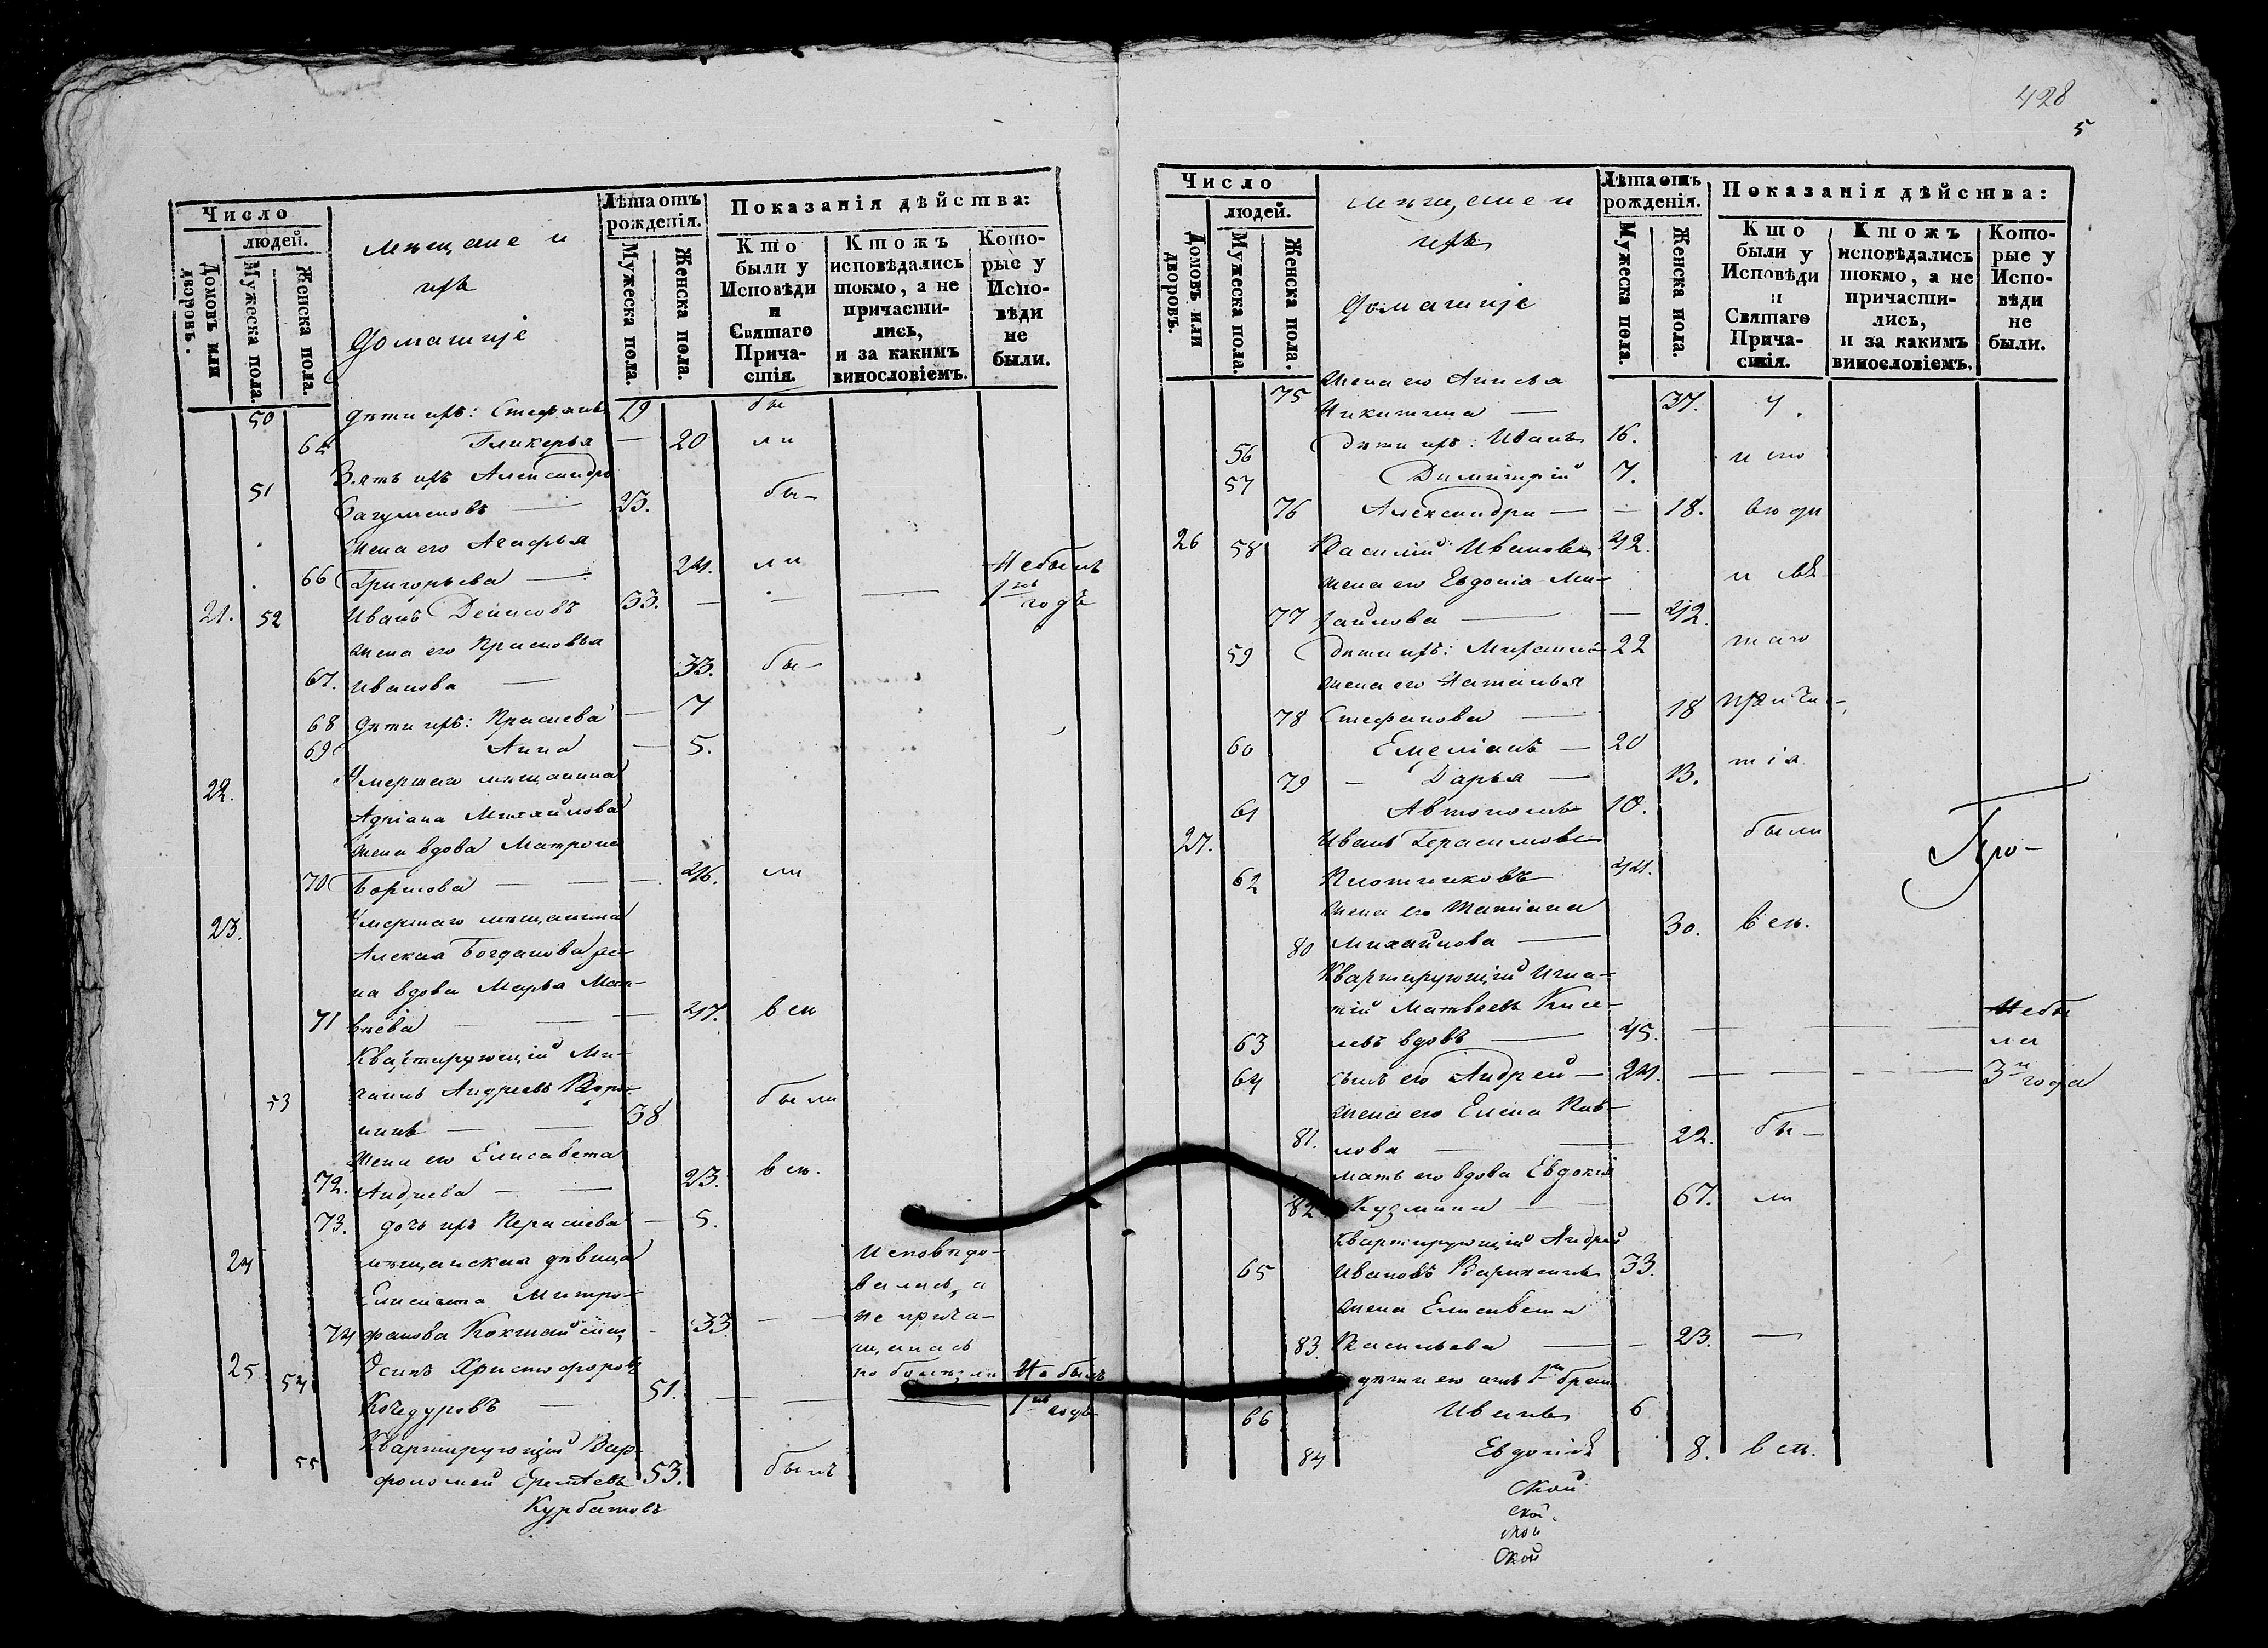 428
5
Число
людей.
Домовъ или дворовъ.
Мужеска пола.
Женска пола.
мѣщане и
ихъ
домашніе
Лѣта отъ рожденія.
Мужеска пола.
Женска пола.
Показанія дѣйства:
Кто были у Исповѣди и Святаго Причастія.
Ктожъ исповѣдались токмо, а не причастились, и за какимъ винословіемъ.
Которые у Исповѣди не были.
50 дѣти ихъ: Стефанъ 19 бы
65 Гликерья — 20 ли
51 Зять ихъ Александръ
23. бы-
Жена его Агафья
66 Григорьева — 24. ли
21. 52 Иванъ Денисовъ 33. — — — Небылъ 1 годъ
жена его Прасковья
67. Иванова — 33. бы-
68 дѣти ихъ: Праскева — 7
69 Анна — 5.
22. Умершаго мѣщанина
Адріана Михайлова
жена вдова Матрона
70 — — 46. ли
23. Умершаго мѣщанина
Алексѣя Богданова же-
на вдова Марья Мат-
71 вѣева — — 47. в сп
Квартирующій Ми-
53 хаилъ Андреевъ Воро-
нинъ — — 38 были
Жена его Елисавета
72. Андреева — — 23. в сп.
73. дочь ихъ Параскева — 5.
24 мѣщанская дѣвица Исповѣдо-
Елисавета Митро- валась, а
74 фанова — 33. — — не прича-
щалась
25 54 Осипъ Христофоровъ по болѣзни Не былъ
51. — — — 1 годъ
Квартирующій Вар-
55 фоломей Еремѣевъ 53. былъ
Курбатовъ
Число
людей.
Домовъ или дворовъ.
Мужеска пола.
Женска пола.
мѣщане и
ихъ
домашніе
Лѣта отъ рожденія.
Мужеска пола.
Женска пола.
Показанія дѣйства:
Кто были у Исповѣди и Святаго Причастія.
Ктожъ исповѣдались токмо, а не причастились, и за какимъ винословіемъ.
Которые у Исповѣди не были.
Жена его Анисья
75 Никитина — 37. у.
56 дѣти ихъ: Иванъ 16.
57 Димитрій 7. испо
76 Александра — — 18. вѣди
26 58 Василій Ивановъ 42.
жена его Евдокія Ми-
77 хайлова — — 42.
59 дѣти ихъ: Михаилъ 22 таго
жена его Наталья
78 Стефанова — 18 причас-
60 Емеліанъ — 20
79 - Дарья — 13. тія
61 Автономъ 10.
27. Иванъ Герасимовъ были
62 Плотниковъ 44.
Жена его Татіана
80 Михайлова — 30. в сп.
Квартирующій Игна-
тій Матвѣевъ Кисе-
63 левъ вдовъ — 45. — — — Небы
ли
64 сынъ его Андрей — 24. — — — 3 года
Жена его Елена Пав-
81. лова — — 22. бы-
мать его вдова Евдокія
82 Кузмина — — 67. ли
Квартирующій Андрей
65 Ивановъ 33.
жена Елисавета
83. Васильева — — 23. —
дѣти его отъ 1 брака
66 Иванъ 6
84 Евдокія 8. в сп.
ской
ской
ской
ской